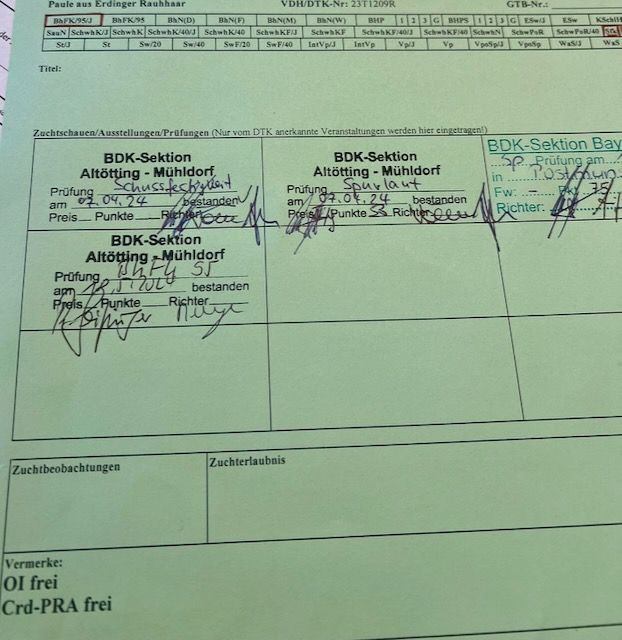 Paule aus Erdinger Rauhhaar VDH/DTK-Nr: 23T1209R GTB-Nr.:
BhFK/95/J BhFK/95 BhN(D) BhN(F) BhN(M) BhN(W) BHP 1 2 3 G BHPS 1 2 3 G ESw/J ESw
SauN SchwhK/J SchwhK SchwhK/40/J SchwhK/40 SchwhKF/J SchwhKF SchwhKF/40/J SchwhKF/40 SchwhN SchwPoR SchwPoR/40
St/J St Sw/20 Sw/40 SwF/20 SwF/40 IntVp/J IntVp Vp/J Vp VpoSp/J VpoSp WaS/J WaS
Titel:
Zuchtschauen/Ausstellungen/Prüfungen (Nur vom DTK anerkannte Veranstaltungen werden hier eingetragen!)
BDK-Sektion
Altötting - Mühldorf
Prüfung Schussfestigkeit
am 07.04.24 bestanden
Preis Punkte Richter
BDK-Sektion
Altötting - Mühldorf
Prüfung Spurlaut
am 07.04.24 bestanden
Preis Punkte 55 Richter
BDK-Sektion Bay
Sp. Prüfung am
in
Fw: - Pkt. 75
Richter:
BDK-Sektion
Altötting - Mühldorf
Prüfung
am bestanden
Preis Punkte Richter
Zuchtbeobachtungen
Zuchterlaubnis
Vermerke:
OI frei
Crd-PRA frei